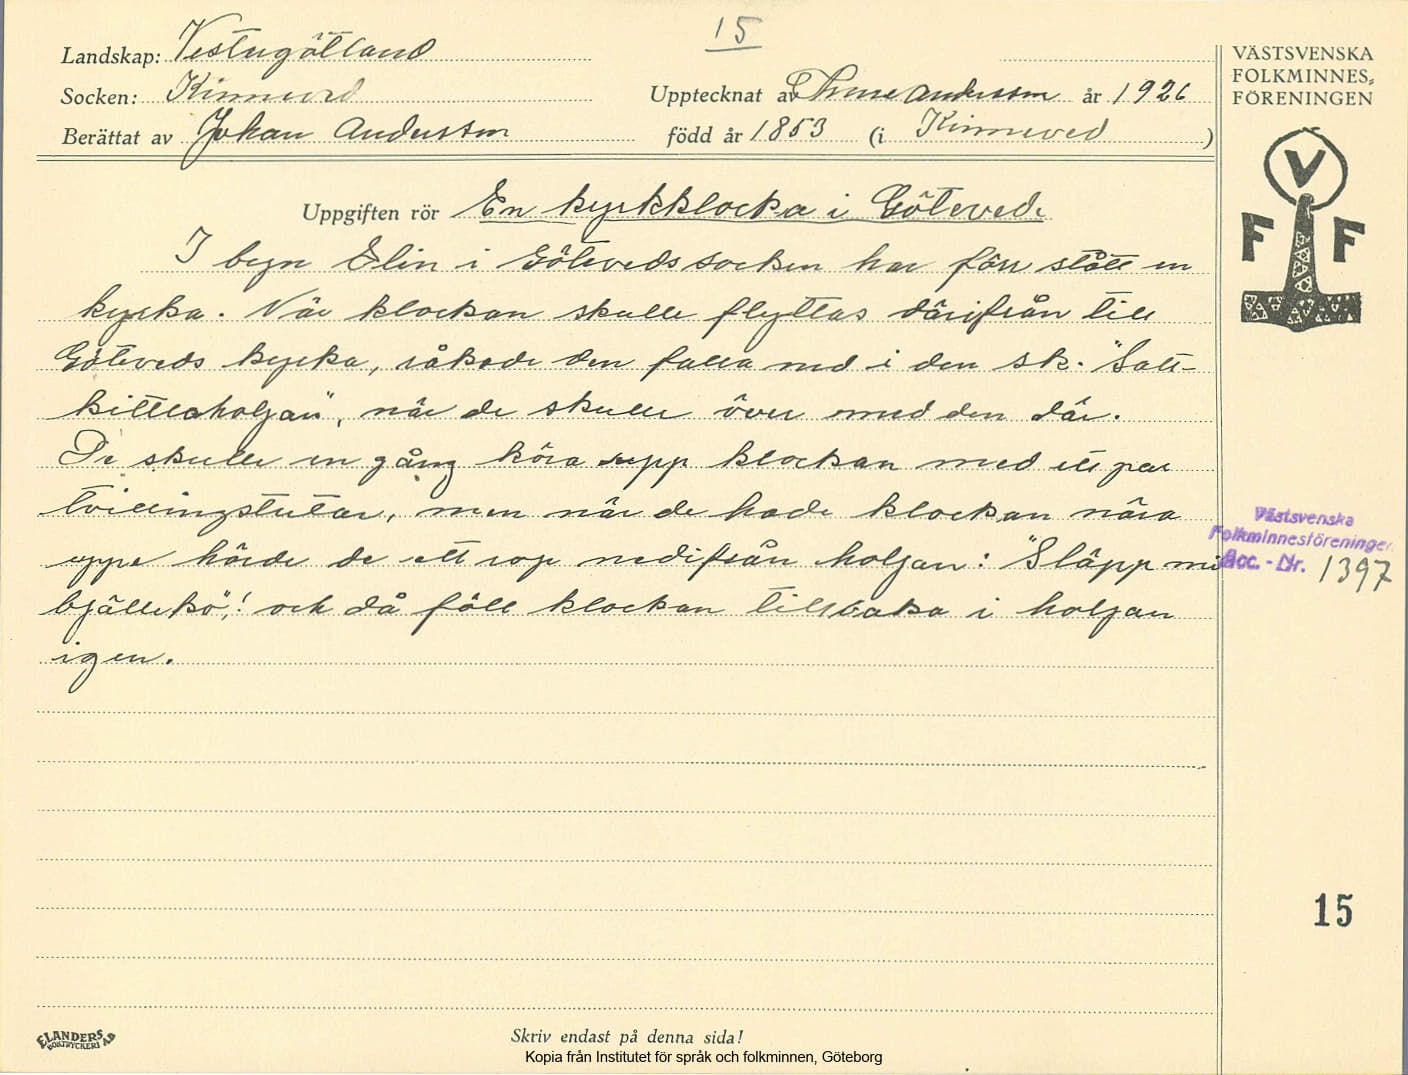 15
Landskap: Vestergötland
VÄSTSVENSKA
FOLKMINNES-
FÖRENINGEN
Socken: Kinneved
Upptecknat av Thure Andersson år 1926
Berättat av Johan Andersson född år 1853 (i Kinneved )
V
F F
Uppgiften rör En kyrkklocka i Göteved.
I byn Elin i Götevedssocken har förr stått en
kyrka. När klockan skulle flyttas därifrån till
Göteveds kyrka, råkade den falla ned i den s.k. "Salt-
kittlaholjan", när de skulle över med den där.
De skulle en gång köra upp klockan med ett par
tvillingstutar, men när de hade klockan nära
uppe hörde de ett rop nedifrån holjan: "Släpp mi
bjälleko"! och då föll klockan tillbaka i holjan
igen.
Västsvenska
Folkminnesföreningen
Acc. - Nr. 1397
15
ELANDERS
BOKTRYCKERI AB
Skriv endast på denna sida!
Kopia från Institutet för språk och folkminnen, Göteborg